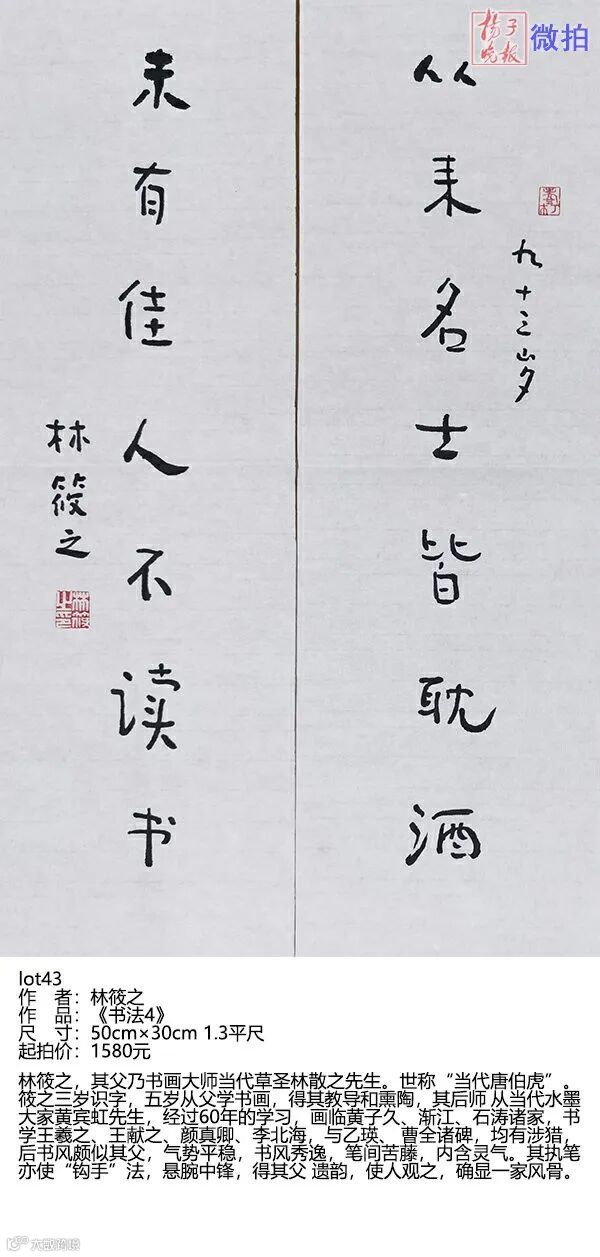 扬子晚报 微拍
九十三岁
从来名士皆耽酒
未有佳人不读书
林筱之
林筱之印
lot43
作 者：林筱之
作 品：《书法4》
尺 寸：50cm×30cm 1.3平尺
起拍价：1580元
林筱之，其父乃书画大师当代草圣林散之先生。世称“当代唐伯虎”。
筱之三岁识字，五岁从父学书画，得其教导和熏陶，其后师 从当代水墨
大家黄宾虹先生，经过60年的学习，画临黄子久、渐江、石涛诸家，书
学王羲之、王献之、颜真卿、李北海，与乙瑛、 曹全诸碑，均有涉猎，
后书风颇似其父，气势平稳，书风秀逸，笔间苦藤，内含灵气。其执笔
亦使“钩手”法，悬腕中锋，得其父 遗韵，使人观之，确显一家风骨。
大数跨境